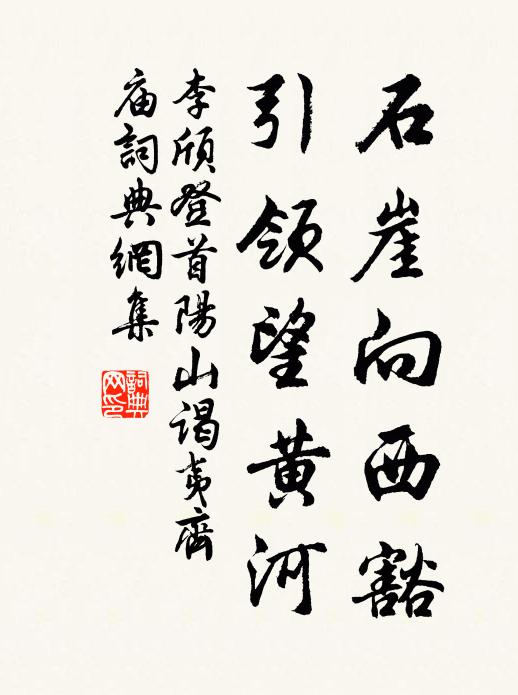 石崖向西豁
引領望黃河
李頎登首陽山謁夷齊
庙詞典網集
詞典
网印